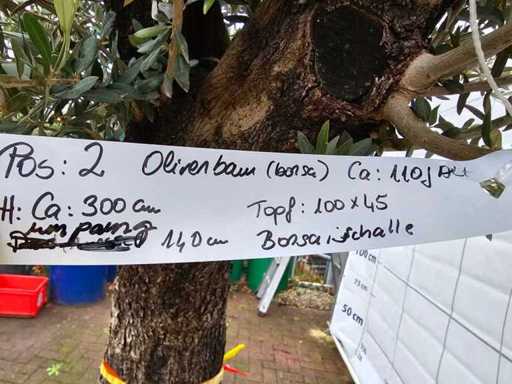 Pos: 2 Olivenbaum (bonsai) Ca: 110j Alt
H: Ca: 300 cm Topf: 100 x 45
140 cm Bonsaischalle
100 cm
75 cm
50 cm